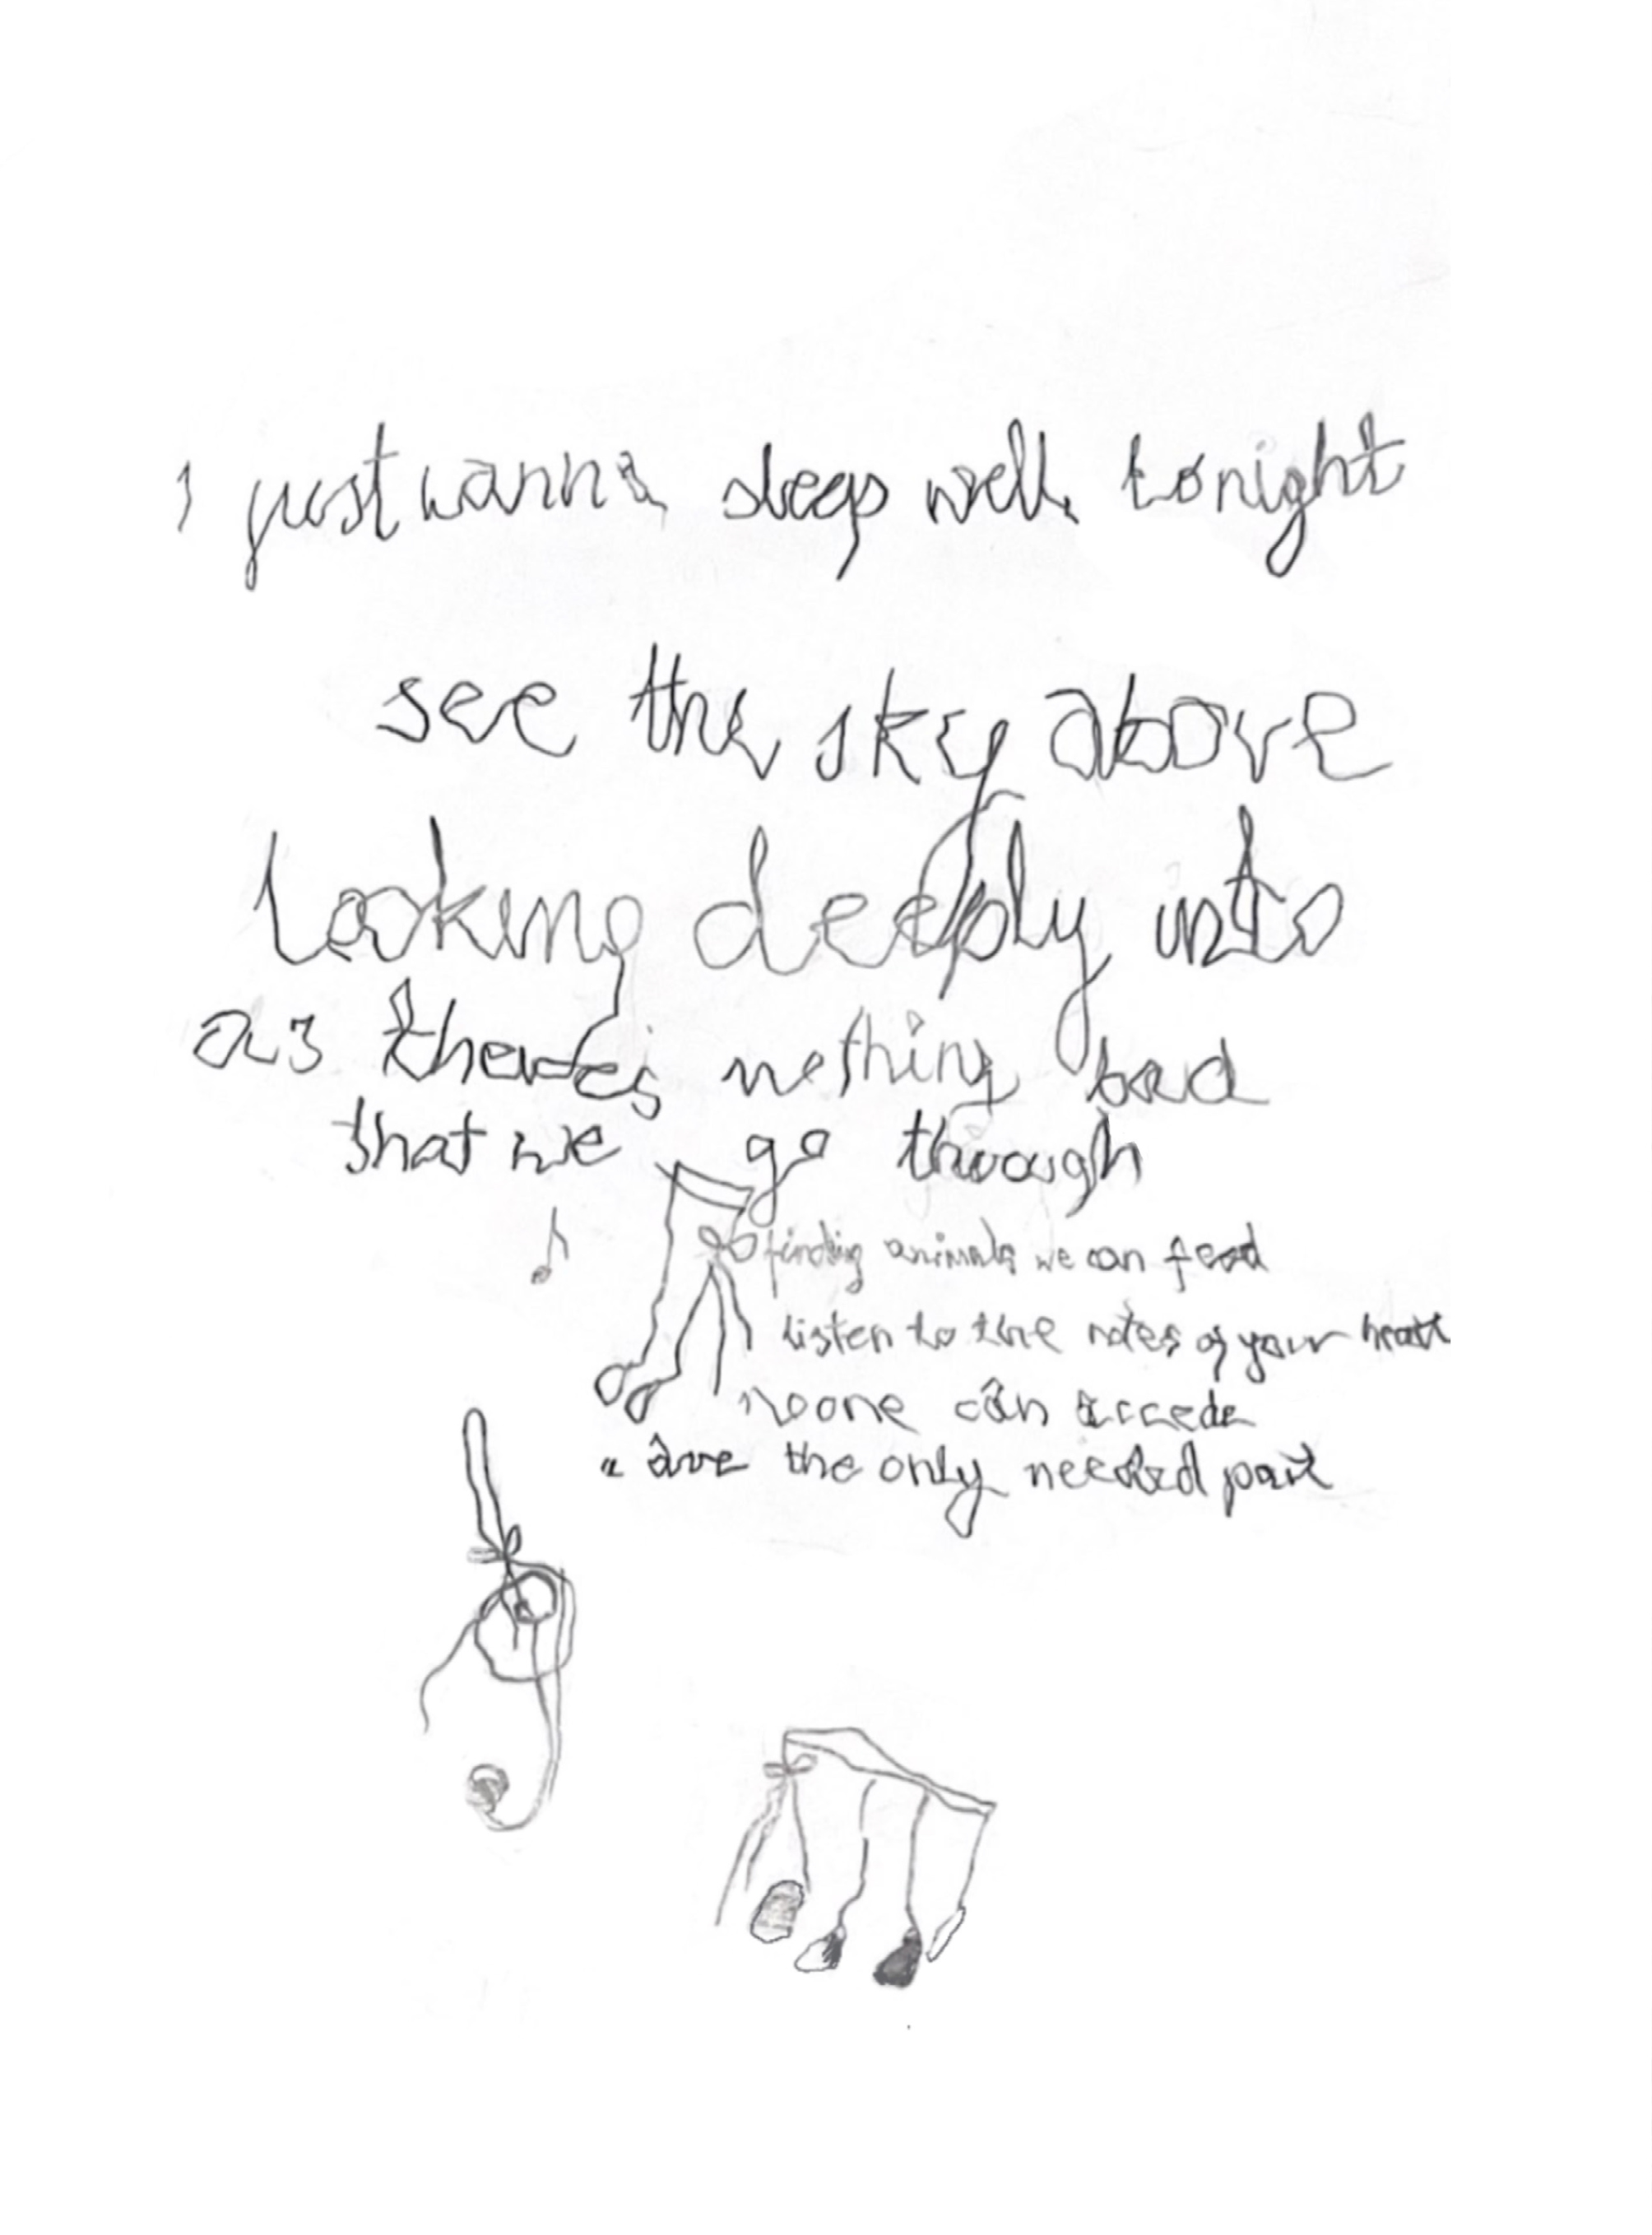 I just wanna sleep well tonight
see the sky above
looking deeply into
as there's nothing bad
that we go through
finding animals we can feed
listen to the notes of your heart
no one can accede
are the only needed part